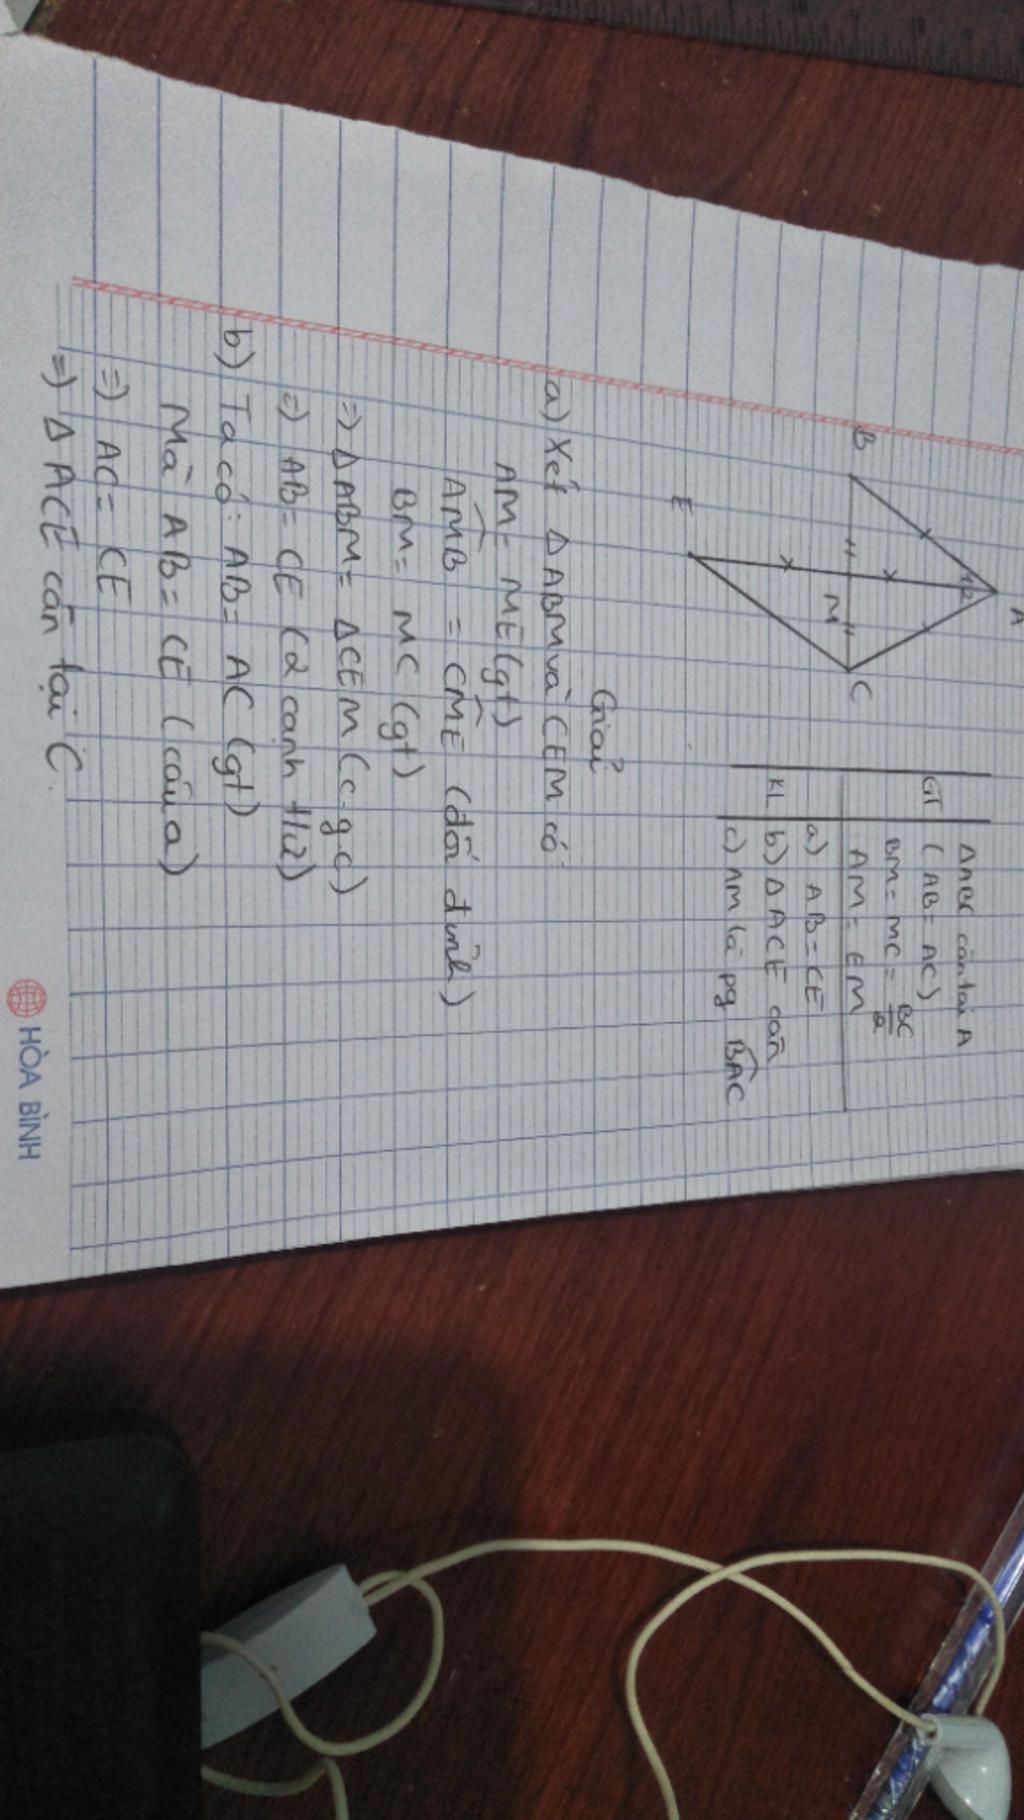 A
B
C
M
E
1 2
ΔABC cân tại A
GT
(AB = AC)
BM = MC = BC/2
AM = EM
a) AB = CE
KL b) ΔACE cân
c) AM là pg BAC
Giải
a) Xét ΔABM và CEM có
AM = ME (gt)
AMB = CME (đối đỉnh)
BM = MC (gt)
=) ΔABM = ΔCEM (c.g.c)
=) AB = CE (2 cạnh tứ)
b) Ta có: AB = AC (gt)
Mà AB = CE (câu a)
=) AC = CE
=) ΔACE cân tại C.
HÒA BÌNH